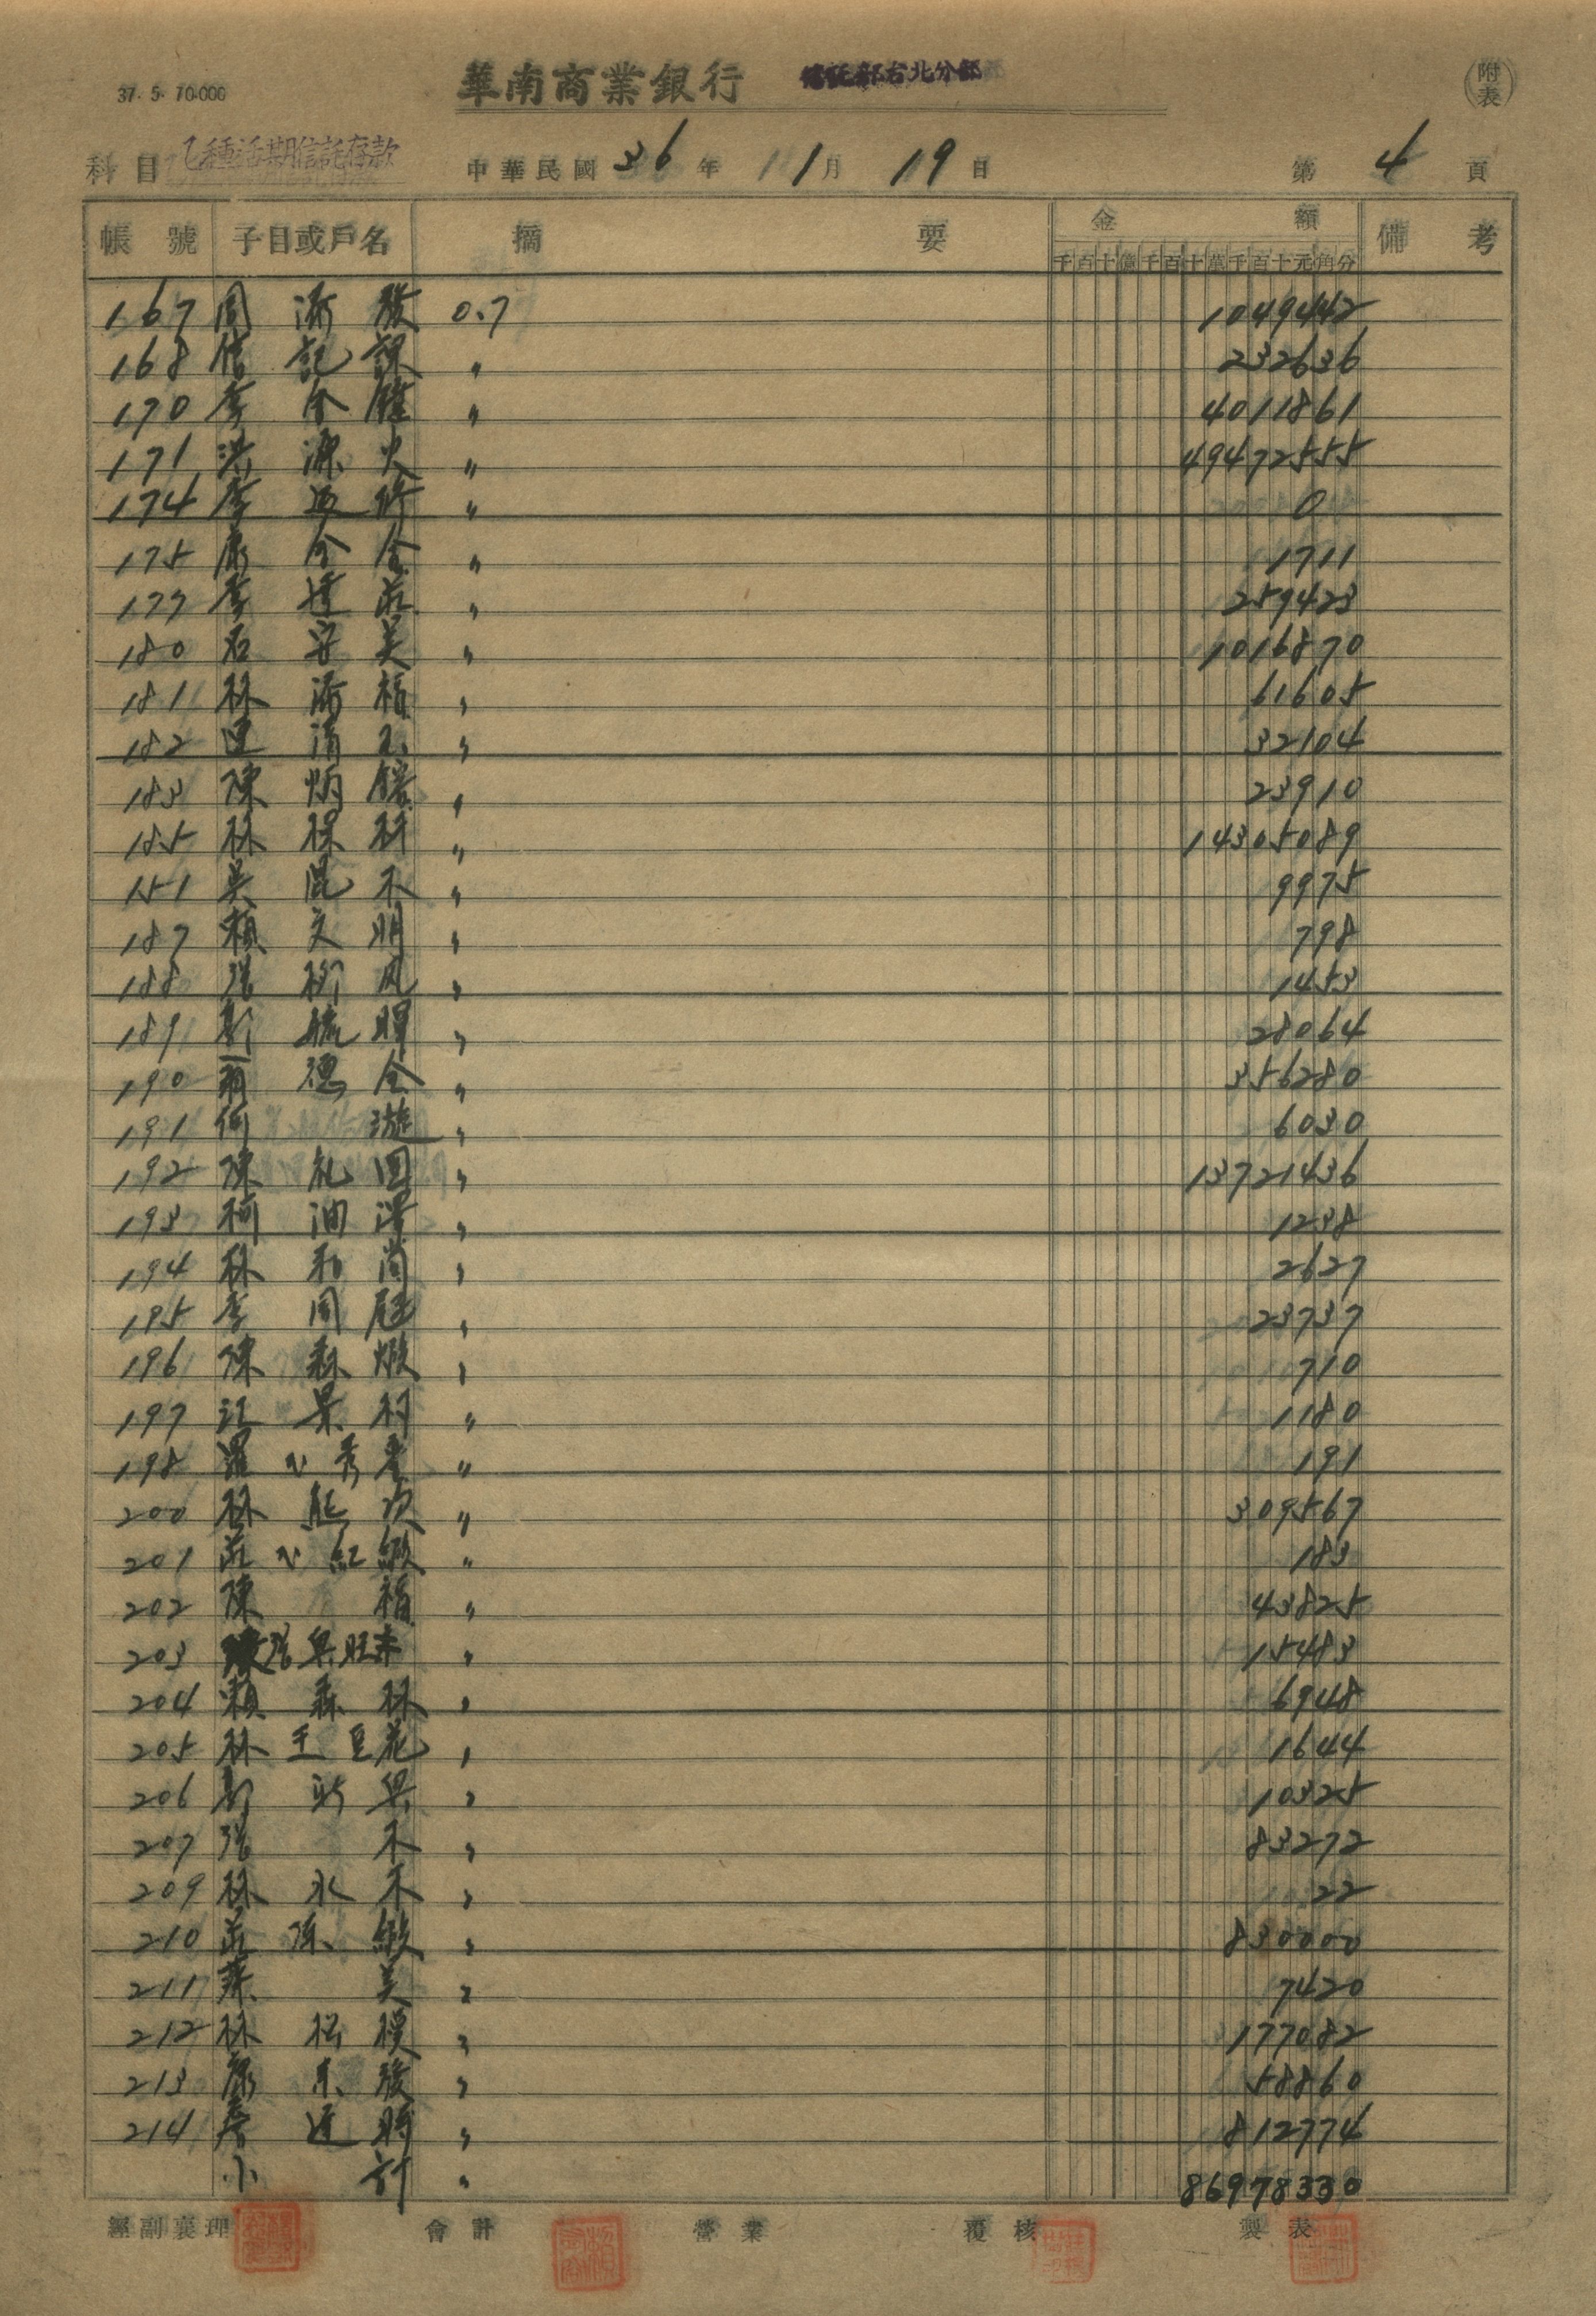 37. 5. 70.000 華南商業銀行 信託部台北分部 (附表)
科目 乙種活期信託存款 中華民國 36 年 11 月 19 日 第 4 頁
帳號 子目或戶名 摘要 金額 備考
千百十億千百十萬千百十元角分
167 周添發 0.7 1049442
168 信託課 〃 232636
170 李金鐘 〃 4011861
171 洪源火 〃 49472555
174 李 修 〃 0
175 康金全 〃 1711
177 李 莊 〃 259423
180 石 美 〃 1016870
181 林添福 〃 61605
182 清 〃 32104
183 陳炳 〃 23910
185 林 〃 14305089
151 吳 木 〃 9975
187 賴文明 〃 798
188 張 風 〃 1453
189 彭 〃 28064
190 翁德全 〃 356280
191 何 〃 6030
192 陳礼 〃 13721436
193 柯油 〃 1238
194 林和尚 〃 2627
195 李周 〃 23737
196 陳森 〃 710
197 江景村 〃 1180
198 羅 秀 〃 191
200 林熊次 〃 309567
201 莊 紅緞 〃 183
202 陳福 〃 43825
203 張吳旺 〃 15483
204 賴森林 〃 6948
205 林王豆花 〃 1644
206 彭新興 〃 10325
207 張木 〃 83272
209 林水木 〃 22
210 莊陳緞 〃 830000
211 葉美 〃 7420
212 林松模 〃 177082
213 康 發 〃 58860
214 時 〃 812774
小計 〃 86978330
經副襄理 會計 營業 覆核 製表